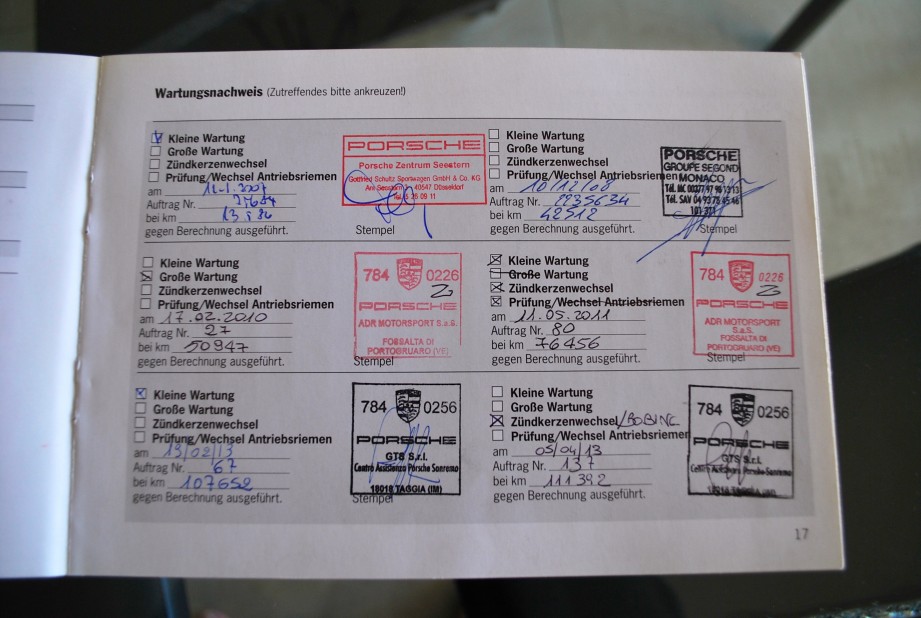 Wartungsnachweis (Zutreffendes bitte ankreuzen!)
Kleine Wartung
Große Wartung
Zündkerzenwechsel
Prüfung/Wechsel Antriebsriemen
am 12-1.2007
Auftrag Nr. 27684
bei km
gegen Berechnung ausgeführt.
PORSCHE
Porsche Zentrum Seestern
Gottfried Schultz Sportwagen GmbH & Co. KG
Am Seestern 40547 Düsseldorf
Stempel
Kleine Wartung
Große Wartung
Zündkerzenwechsel
Prüfung/Wechsel Antriebsriemen
am 10/12/08
Auftrag Nr. 2235634
bei km 42512
gegen Berechnung ausgeführt.
PORSCHE
GROUPE SEGOND
MONACO
Tél. MC 00377 97 98 13 13
Tél. SAV 04 93 78 45 46
Stempel
Kleine Wartung
Große Wartung
Zündkerzenwechsel
Prüfung/Wechsel Antriebsriemen
am 17.02.2010
Auftrag Nr. 27
bei km 50947
gegen Berechnung ausgeführt.
784 0226
PORSCHE
ADR MOTORSPORT S.a.S.
FOSSALTA DI
PORTOGRUARO (VE)
Stempel
Kleine Wartung
Große Wartung
Zündkerzenwechsel
Prüfung/Wechsel Antriebsriemen
am 11.05.2011
Auftrag Nr. 80
bei km 76456
gegen Berechnung ausgeführt.
784 0226
PORSCHE
ADR MOTORSPORT
S.a.S.
FOSSALTA DI
PORTOGRUARO (VE)
Stempel
Kleine Wartung
Große Wartung
Zündkerzenwechsel
Prüfung/Wechsel Antriebsriemen
am 19/02/13
Auftrag Nr. 67
bei km 107652
gegen Berechnung ausgeführt.
784 0256
PORSCHE
GTS S.r.l.
Centro Assistenza Porsche Sanremo
18018 TAGGIA (IM)
Stempel
Kleine Wartung
Große Wartung
Zündkerzenwechsel/BOBINE
Prüfung/Wechsel Antriebsriemen
am 05/04/13
Auftrag Nr. 137
bei km 111392
gegen Berechnung ausgeführt.
784 0256
PORSCHE
GTS S.r.l.
Centro Assistenza Porsche Sanremo
17